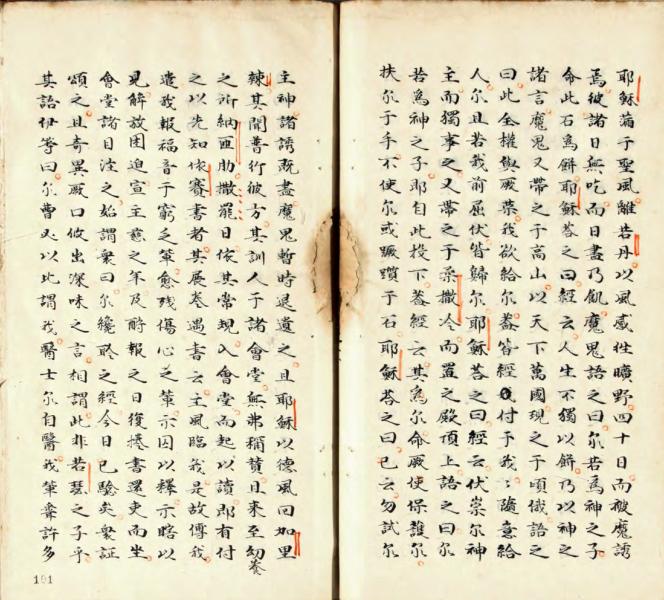 耶穌滿于聖風離若丹以風感徃曠野四十日而被魔誘
焉彼諸日無吃而日盡乃飢魔鬼語之曰尔若為神之子
命此石為餅耶穌荅之曰經云人生不獨以餅乃以神之
諸言魔鬼又帶之于高山以天下萬國現之于頃俄語之
曰此全權與厥榮我欲給尔葢皆經付于我我隨意給
人尔且若我前屈伏皆歸尔耶穌荅之曰經云伏崇尔神
主而獨事之又帶之于柔撒冷而置之殿頂上語之曰尔
若為神之子即自此投下葢經云其為尔命厥使保護尔
扶尔于手不使尔或蹶躓于石耶穌荅之曰已云勿試尔
主神諸誘既盡魔鬼暫時退遺之且耶穌以德風回加里
辣其聞普行彼方其訓人于諸會堂無弗稱賛且来至幼養
之所納匝肋撒罷日依其常規入會堂而起以讀即有付
之以先知依賽書者其展卷遇書云主風臨我是故傅我
遣我報福音于窮乏輩愈残傷心之輩示囚以釋示瞎以
見解放困迫宣主慈之年及酧報之日復捲書還吏而坐
會堂諸目注之始謂衆曰尔纔聆之經今日已驗矣衆証
頌之且奇異厥口攸出深味之言相謂此非若瑟之子乎
其語伊等曰尔曹必以此謂我醫士尔自醫我輩聞許多
191